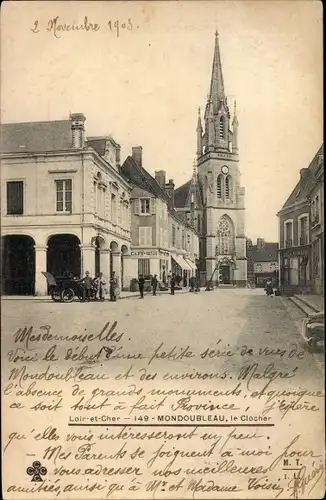 2 Novembre 1903
CAFÉ
Mesdemoiselles.
Voici le début d'une petite série de vues de
Mondoubleau et des environs. Malgré
l'absence de grands monuments et quoique
ce soit tout à fait Province, j'espère
Loir-et-Cher — 149 - MONDOUBLEAU, le Clocher
qu'elles vous intéresseront quand même
Mes Parents se joignent à moi pour
vous adresser nos meilleures
amitiés, ainsi qu'à Mr et Madame Voisin
M. T.
I. L.